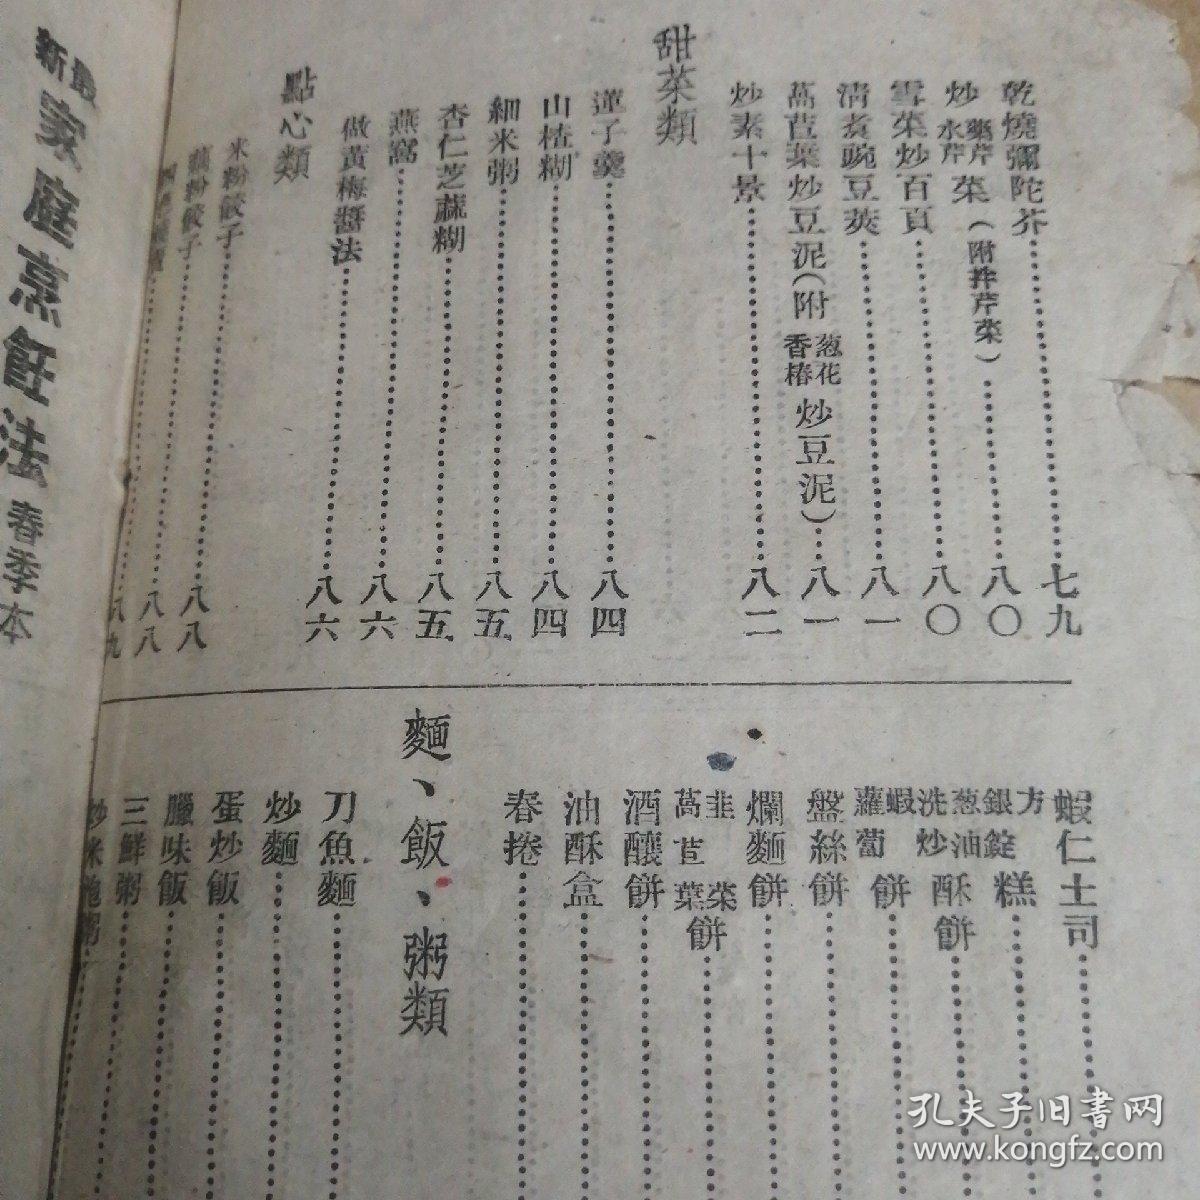 乾燒彌陀芥……七九
炒藥芹水芹菜(附拌芹菜)……八〇
雪菜炒百頁……八〇
清煮豌豆莢……八一
萵苣葉炒豆泥(附葱花香椿炒豆泥)……八一
炒素十景……八二
甜菜類
蓮子羹……八四
山楂糊……八四
細米粥……八五
杏仁芝蔴糊……八五
燕窩……八六
做黃梅醬法……八六
點心類
米粉餃子……八八
藕粉餃子……八八
八九
蝦仁土司
方銀錠糕
葱油洗炒酥餅
蝦蘿蔔餅
盤絲餅
爛麵餅
韭菜萵苣葉餅
酒釀餅
油酥盒
春捲
麵、飯、粥類
刀魚麵
炒麵
蛋炒飯
臘味飯
三鮮粥
炒米泡粥
最新家庭烹飪法春季本
孔夫子旧书网
www.kongfz.com